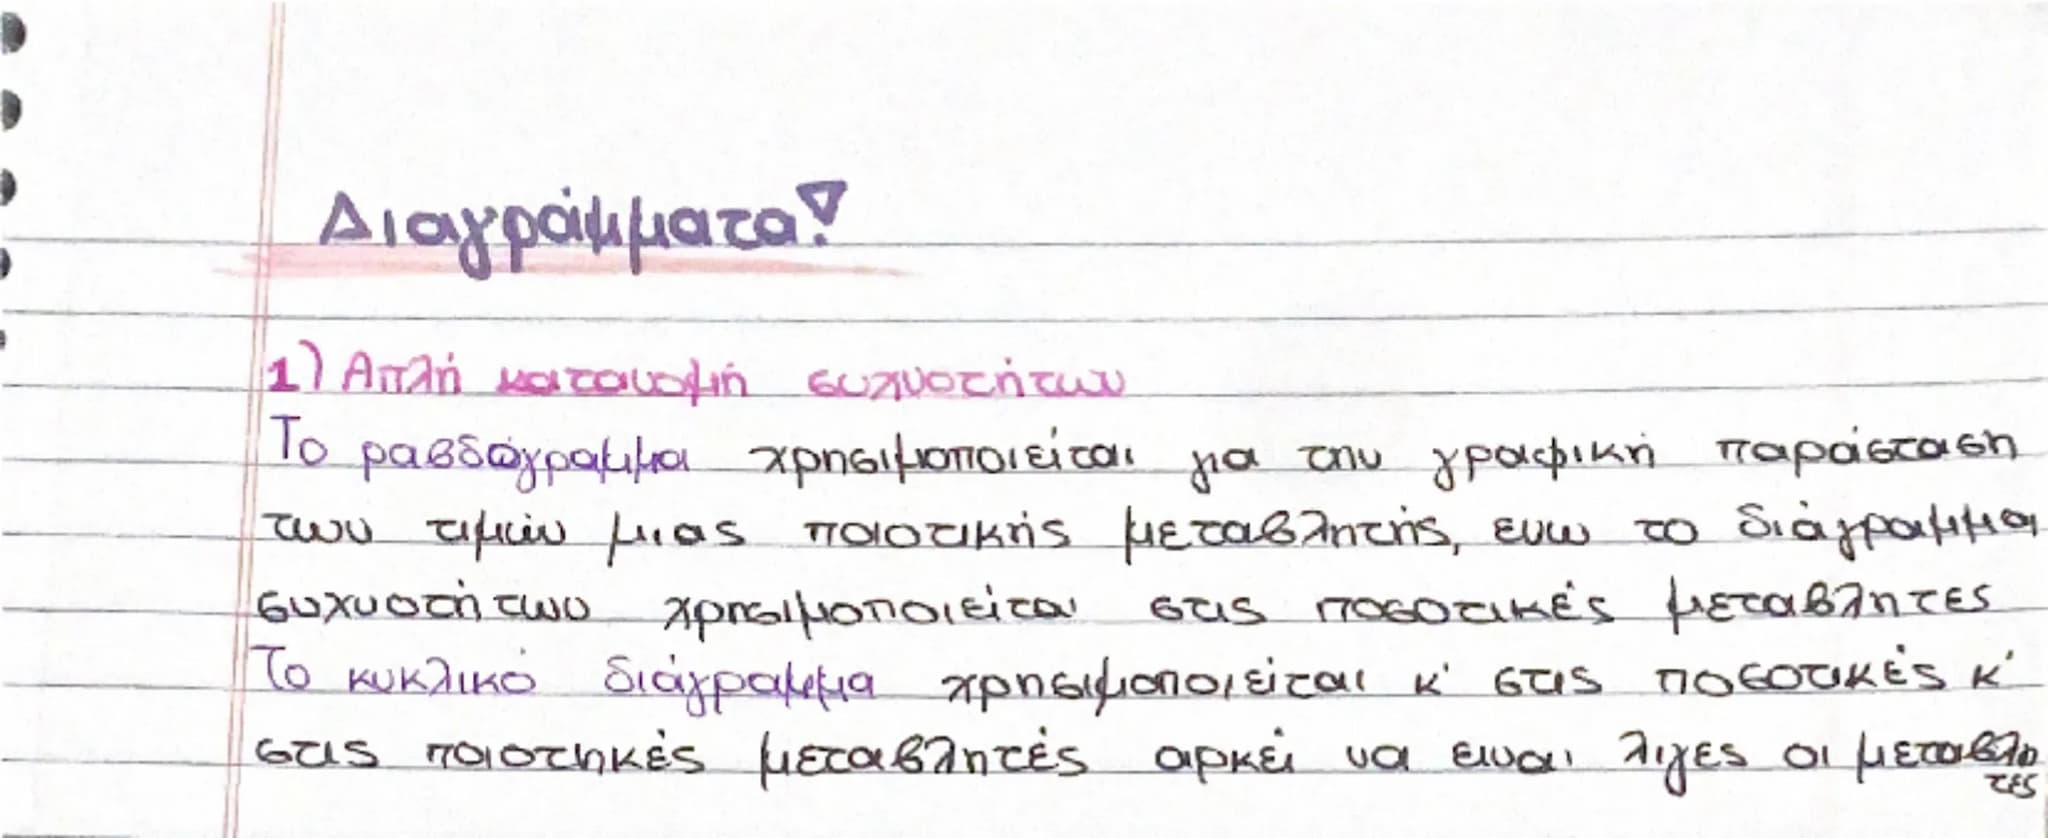 Διαγράμματα!
1) Απλή κατανομή συχνοτήτων
Το ραβδόγραμμα χρησιμοποιείται για την γραφική παράσταση
των τιμών μιας ποιοτικής μεταβλητής, ενω το διάγραμμα
συχνοτήτων χρησιμοποιείται στις ποσοτικές μεταβλητες
Το κυκλικό διάγραμμα χρησιμοποιείται κ' στις ποσοτικές κ'
στις ποιοτηκές μεταβλητές αρκεί να ειναι λιγες οι μεταβλη
τές